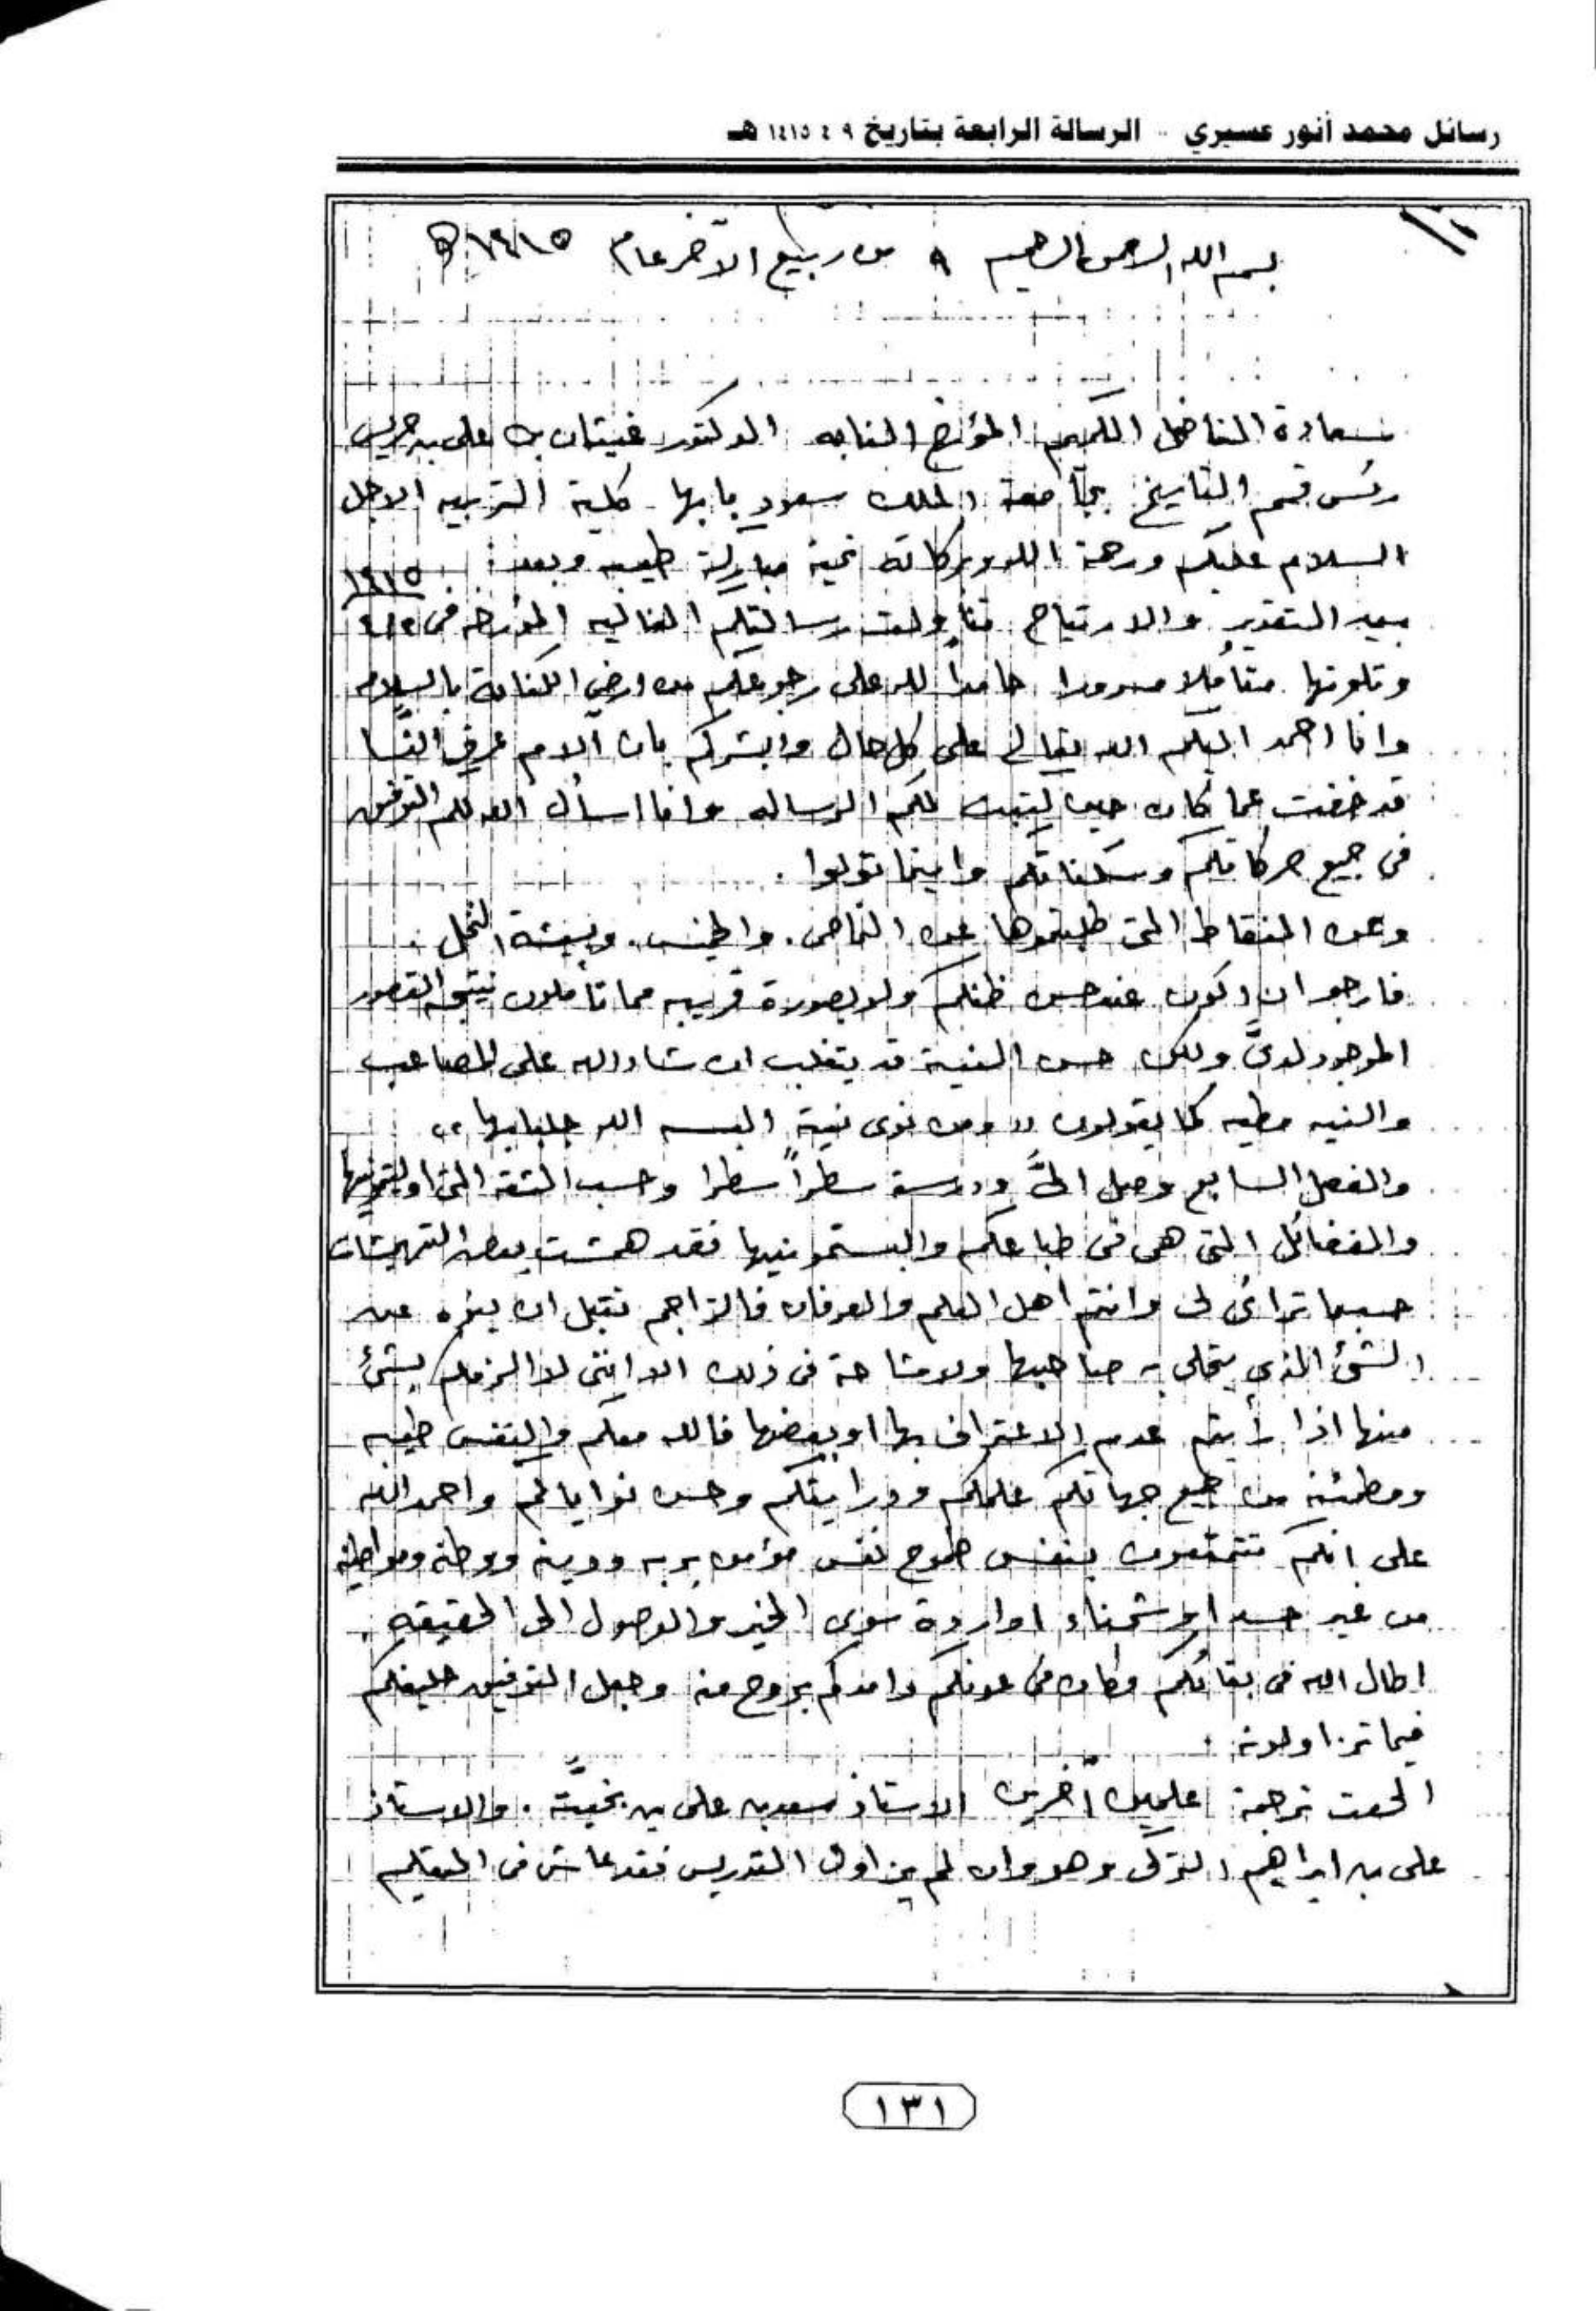 رسائل محمد أنور عسيري - الرسالة الرابعة بتاريخ ٩ ٤ ١٤١٥ هـ
بسم الله الرحمن الرحيم ٩ من ربيع الآخر عام ١٤١٥ هـ
سعادة الفاضل الكريم المؤرخ النابه الدكتور غيثان بن على بن جريس
رئس قسم التاريخ بجامعة الملك سعود بابها كلية التربيه الاجل
السلام عليكم ورحمة الله وبركاته تحية مباركة طيبه وبعد :
بيد التقدير والارتياح تناولت رسالتكم الغاليه المؤرخه فى ١٤١٥
وتلوتها متأملا مسرورا حامدا لله على رجوعكم من ارض الكنانة بالسلامه
وانا احمد اليكم الله تعالى على كل حال وابشركم بان آلام عرق النسا
قد خفت عما كان حين كتبت لكم الرساله وانا اسأل الله لكم التوفيق
فى جميع حركاتكم وسكناتكم واينما تولوا .
وعن النقاط التى طلبتموها عن النماص . والحنيس . وبيشة النخل .
فارجو ان اكون عند حسن ظنكم ولو بصورة قريبه مما تأملون نتيجه القصور
الموجود لدىَّ ولكن حسن النية قد يتغلب ان شاء الله على المصاعب
والنيه مطيه كما يقولون (( ومن نوى نية البسه الله جلبابها ))
والفصل السابع وصل الىَّ ودرسته سطراً سطرا وحسب الثقه التى اوليتمونيها
والفضائل التى هى فى طباعكم والبستمونيها فقد همشت بعض التهميشات
حسبما ترائى لى وانتم اهل العلم والعرفان فالتراجم تقبل ان ينوه عن
الشئ الذى يتحلى به صاحبها ولا مشاحة فى ذلك الا اننى لا الزمكم بشئ
منها اذا رأيتم عدم الاعتراف بها او بعضها فالله معكم والنفس طيبه
ومطمئنه من جميع جهاتكم علمكم ودرايتكم وحسن نواياكم واحمد الله
على انكم تتمتعون بنفس طموح نفس مؤمن بربه ودينه ووطنه ومواطنيه
من غير حسد او شحناء او ارادة سوى الخير والوصول الى الحقيقه .
اطال الله فى بقائكم وكان فى عونكم وامدكم بروح منه وجعل التوفيق حليفكم
فيما تزاولونه .
الحقت ترجمة علمين آخرين الاستاذ سعد بن على بن بخيتَّه . والاستاذ
على بن ابراهيم التركى وهو وان لم يزاول التدريس فقد عاش فى التعليم
١٣١